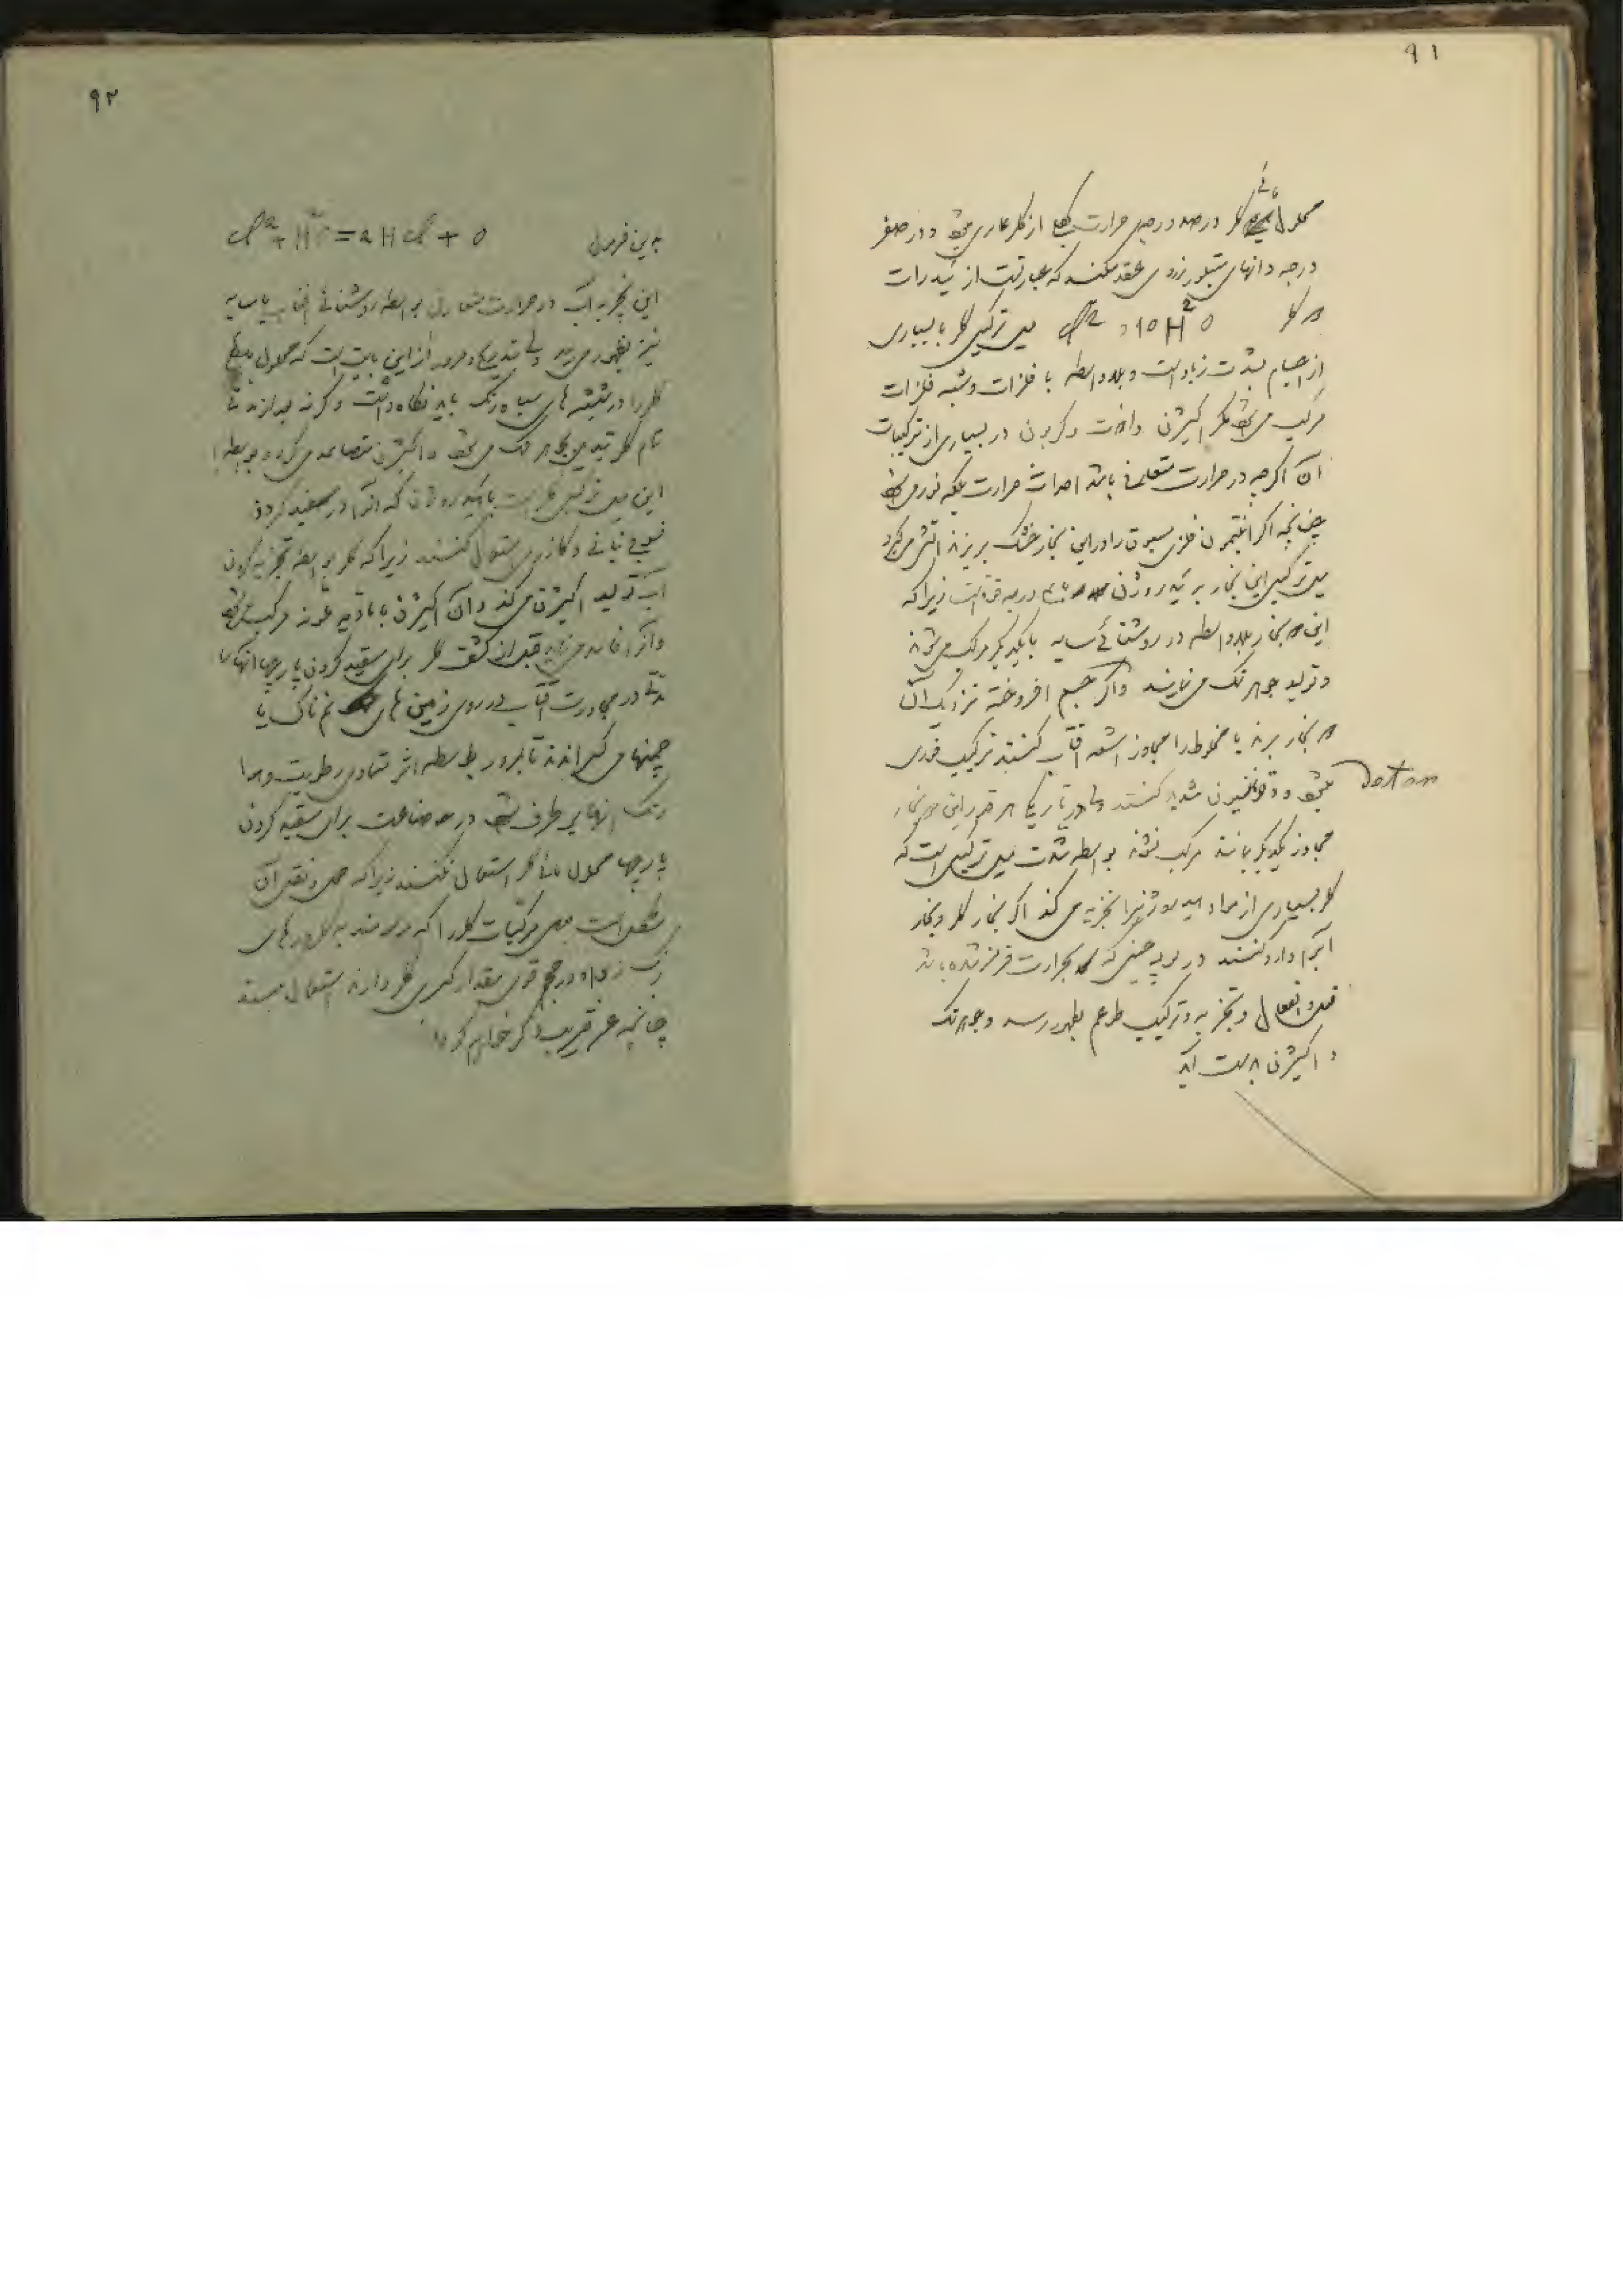 ٩١
محلول مائی کلر در صد درجهٔ حرارت از کلر عاری میشود و در صفر
درجه دانهای متبلور زردی عقد میکنند که عبارتست از ئیدرات
کلر Cl², 10H²O میل ترکیبی کلر با بسیاری
از اجسام بشدت زیاد است و بلاواسطه با فلزات و شبه فلزات
مرکب می‌شود مگر اکیژن و ازت و کربون در بسیاری از ترکیبات
آن اگرچه در حرارت متعارفی باشد احداث حرارت بلکه نور می‌شود
چنانچه اگر انتیمون فلزی مسحوق را در این بخار خشک بریزند آتش میگیرد
میل ترکیبی این بخار به ئیدروژن درجه است زیرا که
این دو بخار بلاواسطه در روشنائی سایه با یکدیگر مرکب می‌شوند
و تولید جوهر نمک می‌نمایند و اگر جسم افروخته نزدیک آن
دو بخار برند یا مخلوط را مجاور اشعه آفتاب کنند ترکیب فوری
میشود و شدید کنند و در تاریکی هر قدر این دو بخار
detan
مجاور یکدیگر بمانند مرکب نشوند بواسطه شدت میل ترکیبی است که
کلر بسیاری از مواد ئیدروژنی را تجزیه می‌کند اگر بخار کلر و بخار
آب را وارد کنند در لوله چینی که بحرارت قرمز شده باشد
فعل و انفعال و تجزیه و ترکیب طرح بظهور رسد و جوهر نمک
و اکیژن بدست آید
٩٢
به این فرمول Cl² + H²O = 2HCl + O
این تجزیه آب در حرارت متعارفی بواسطه روشنائی آفتاب یا سایه
نیز بظهور می‌رسد ولی بتدریج و مرور از این بابت است که محلول مائی
کلر را در شیشه‌های سیاه رنگ باید نگاه داشت وگرنه بعد از مدتی
تمام کلر تبدیل بجوهر نمک می‌شود و اکیژن متصاعد می‌گردد و بواسطه
این میل ترکیبی کلر است با ئیدروژن که آنرا در سفید کردن
نباتی و کاغذ استعمال کنند زیرا که کلر بواسطه تجزیه کردن
آب تولید اکیژن می‌کند و آن اکیژن با مادهٔ ملونه مرکب می‌شود
و آنرا فاسد می‌نماید قبل از کشف کلر برای سفید کردن پارچها آنها را
مدتی در مجاورت آفتاب در روی زمین‌های نم‌ناک یا
چمنها می‌گستراندند تا بمرور بواسطه اثر متمادی رطوبت و هوا
رنگ آنها بر طرف شود در صناعت برای سفید کردن
پارچها محلول مائی کلر استعمال نکنند زیرا که حمل و نقل آن
مشکل است بعضی مرکبات کلر را که موسومند به کلرورهای
رنگ زدا و در حجم قوی مقدار کثیری کلر دارند استعمال میکنند
چنانچه عنقریب ذکر خواهیم کرد